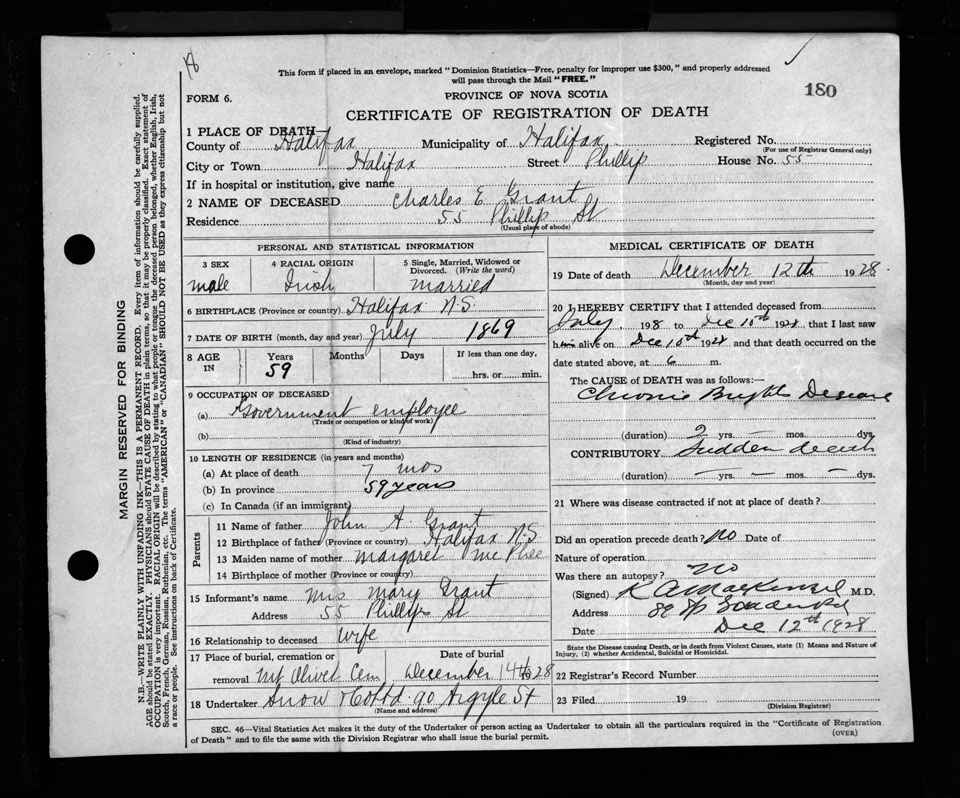 18
This form if placed in an envelope, marked "Dominion Statistics—Free, penalty for improper use $300," and properly addressed
will pass through the Mail "FREE."
180
FORM 6.
PROVINCE OF NOVA SCOTIA
CERTIFICATE OF REGISTRATION OF DEATH
1 PLACE OF DEATH—
County of Halifax Municipality of Halifax Registered No.
(For use of Registrar General only)
City or Town Halifax Street Phillip House No. 55
If in hospital or institution, give name
2 NAME OF DECEASED Charles E Grant
Residence 55 Phillip St
(Usual place of abode)
PERSONAL AND STATISTICAL INFORMATION
3 SEX
male
4 RACIAL ORIGIN
Irish
5 Single, Married, Widowed or
Divorced. (Write the word)
married
6 BIRTHPLACE (Province or country) Halifax N.S.
7 DATE OF BIRTH (month, day and year) July 1869
8 AGE IN
Years
59
Months
Days
If less than one day,
hrs. or min.
9 OCCUPATION OF DECEASED
(a) Government employee
(Trade or occupation or kind of work)
(b)
(Kind of industry)
10 LENGTH OF RESIDENCE (in years and months)
(a) At place of death 7 mos
(b) In province 59 years
(c) In Canada (if an immigrant)
Parents
11 Name of father John A. Grant
12 Birthplace of father (Province or country) Halifax N.S.
13 Maiden name of mother Margaret McPhee
14 Birthplace of mother (Province or country)
15 Informant's name Mrs Mary Grant
Address 55 Phillips St
16 Relationship to deceased wife
17 Place of burial, cremation or
Date of burial
removal Mt Olivet Cem December 14th 1928
18 Undertaker Snow & Co Ltd. 90 Argyle St
(Name and address)
MEDICAL CERTIFICATE OF DEATH
19 Date of death December 12th 1928.
(Month, day and year)
20 I HEREBY CERTIFY that I attended deceased from
July, 1928 to Dec 10th 1928 that I last saw
him alive on Dec 10th 1928 and that death occurred on the
date stated above, at 6 m.
The CAUSE OF DEATH was as follows:—
Chronic Brights Disease
(duration) 2 yrs. — mos. dys.
CONTRIBUTORY Sudden death
(duration) — yrs. — mos. — dys.
21 Where was disease contracted if not at place of death?
Did an operation precede death? No Date of
Nature of operation
Was there an autopsy? No
(Signed) K A MacKenzie M.D.
Address
Date Dec 12th 1928
State the Disease causing Death, or in death from Violent Causes, state (1) Means and Nature of
Injury, (2) whether Accidental, Suicidal or Homicidal.
22 Registrar's Record Number
23 Filed 19
(Division Registrar)
SEC. 46—Vital Statistics Act makes it the duty of the Undertaker or person acting as Undertaker to obtain all the particulars required in the "Certificate of Registration
of Death" and to file the same with the Division Registrar who shall issue the burial permit.
(OVER)
MARGIN RESERVED FOR BINDING
N.B.—WRITE PLAINLY WITH UNFADING INK—THIS IS A PERMANENT RECORD. Every item of information should be carefully supplied.
AGE should be stated EXACTLY. PHYSICIANS should STATE CAUSE OF DEATH in plain terms, so that it may be properly classified. Exact statement of
OCCUPATION is very important. RACIAL ORIGIN will be described by stating to what people or tongue the deceased person belonged, whether English, Irish,
Scotch, French, German, Russian, Ruthenian, etc. The terms "AMERICAN" or "CANADIAN" SHOULD NOT BE USED as they express citizenship but not
a race or people. See instructions on back of Certificate.